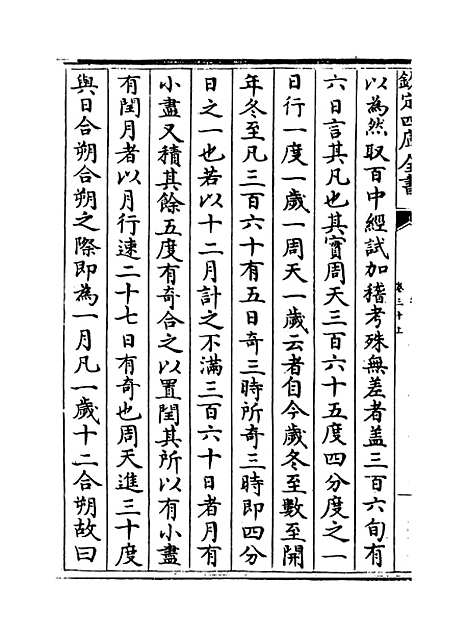 欽定四庫全書
以為然取百中經試加稽考殊無差者盖三百六旬有
六日言其凡也其實周天三百六十五度四分度之一
日行一度一歲一周天一歲云者自今歲冬至數至開
年冬至凡三百六十有五日奇三時所奇三時即四分
日之一也若以十二月計之不滿三百六十日者月有
小盡又積其餘五度有奇合之以置閏其所以有小盡
有閏月者以月行速二十七日有奇也周天進三十度
與日合朔合朔之際即為一月凡一歲十二合朔故曰